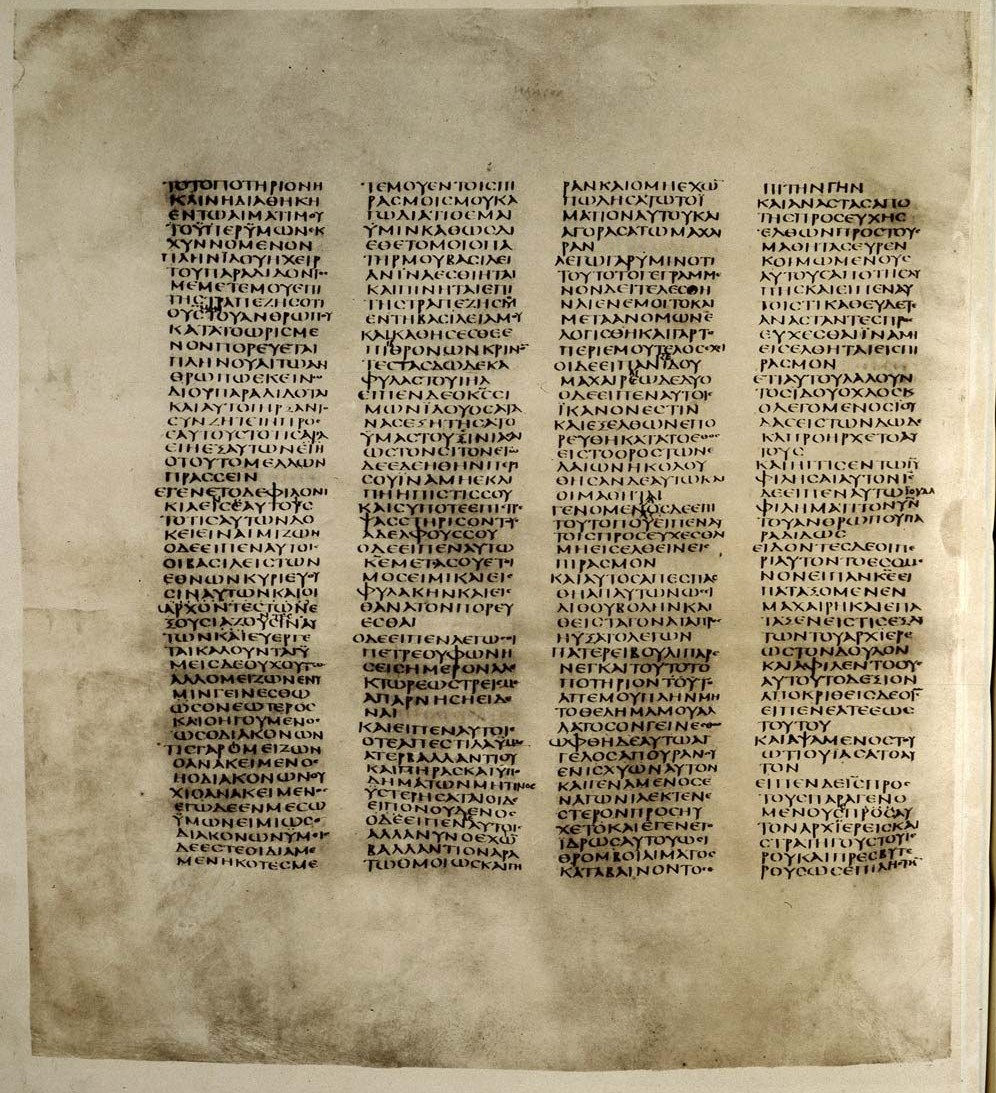 ΤΟΤΟΠΟΤΗΡΙΟΝΗ
ΚΑΙΝΗΔΙΑΘΗΚΗ
ΕΝΤΩΑΙΜΑΤΙΜΟΥ
ΤΟΫΠΕΡΫΜΩΝΕΚ
ΧΥΝΝΟΜΕΝΟΝ
ΠΛΗΝΙΔΟΥΗΧΕΙΡ
ΤΟΥΠΑΡΑΔΙΔΟΝΤΟϹ
ΜΕΜΕΤΕΜΟΥΕΠΙ
ΤΗϹΤΡΑΠΕΖΗϹΟΤΙ
ΟΥϹΤΟΥΑΝΘΡΩΠΟΥ
ΚΑΤΑΤΟΩΡΙϹΜΕ
ΝΟΝΠΟΡΕΥΕΤΑΙ
ΠΛΗΝΟΥΑΙΤΩΑΝ
ΘΡΩΠΩΕΚΕΙΝΩ
ΔΙΟΥΠΑΡΑΔΙΔΟΤΑΙ
ΚΑΙΑΥΤΟΙΗΡΞΑΝΤΟ
ϹΥΝΖΗΤΕΙΝΠΡΟϹ
ΕΑΥΤΟΥϹΤΟΤΙϹΑΡΑ
ΕΙΗΕΞΑΥΤΩΝΕΠΙ
ΟΤΟΥΤΟΜΕΛΛΩΝ
ΠΡΑϹϹΕΙΝ
ΕΓΕΝΕΤΟΔΕΦΙΛΟΝΙ
ΚΙΑΕΙϹΕΑΥΤΟΥϹ
ΤΟΤΙϹΑΥΤΩΝΔΟ
ΚΕΙΕΙΝΑΙΜΙΖΩΝ
ΟΔΕΕΙΠΕΝΑΥΤΟΙϹ
ΟΙΒΑϹΙΛΕΙϹΤΩΝ
ΕΘΝΩΝΚΥΡΙΕΥΟΥ
ϹΙΝΑΥΤΩΝΚΑΙΟΙ
ΑΡΧΟΝΤΕϹΤΩΝΕ
ΞΟΥϹΙΑΖΟΥϹΙΝΑΥ
ΤΩΝΚΑΙΕΥΕΡΓΕ
ΤΑΙΚΑΛΟΥΝΤΑΙΫ
ΜΕΙϹΔΕΟΥΧΟΥΤΩϹ
ΑΛΛΟΜΕΙΖΩΝΕΝΫ
ΜΙΝΓΕΙΝΕϹΘΩ
ΩϹΟΝΕΩΤΕΡΟϹ
ΚΑΙΟΗΓΟΥΜΕΝΟϹ
ΩϹΟΔΙΑΚΟΝΩΝ
ΤΙϹΓΑΡΟΜΕΙΖΩΝ
ΟΑΝΑΚΕΙΜΕΝΟϹ
ΗΟΔΙΑΚΟΝΩΝΟΥ
ΧΙΟΑΝΑΚΕΙΜΕΝΟϹ
ΕΓΩΔΕΕΝΜΕϹΩ
ΫΜΩΝΕΙΜΙΩϹΟ
ΔΙΑΚΟΝΩΝΫΜΕΙϹ
ΔΕΕϹΤΕΟΙΔΙΑΜΕ
ΜΕΝΗΚΟΤΕϹΜΕ
ΤΕΜΟΥΕΝΤΟΙϹΠΙ
ΡΑϹΜΟΙϹΜΟΥΚΑ
ΓΩΔΙΑΤΙΘΕΜΑΙ
ΫΜΙΝΚΑΘΩϹΔΙ
ΕΘΕΤΟΜΟΙΟΠΑ
ΤΗΡΜΟΥΒΑϹΙΛΕΙ
ΑΝΙΝΑΕϹΘΙΗΤΑΙ
ΚΑΙΠΙΝΗΤΑΙΕΠΙ
ΤΗϹΤΡΑΠΕΖΗϹΜΟΥ
ΕΝΤΗΒΑϹΙΛΕΙΑΜΟΥ
ΚΑΙΚΑΘΗϹΕϹΘΕΕ
ΠΙΘΡΟΝΩΝΚΡΙΝΟΝ
ΤΕϹΤΑϹΔΩΔΕΚΑ
ΦΥΛΑϹΤΟΥΙΗΛ
ΕΙΠΕΝΔΕΟΚϹϹΙ
ΜΩΝΙΔΟΥΟϹΑΤΑ
ΝΑϹΕΞΗΤΗϹΑΤΟ
ΫΜΑϹΤΟΥϹΙΝΙΑϹΑΙ
ΩϹΤΟΝϹΙΤΟΝΕΓΩ
ΔΕΕΔΕΗΘΗΝΠΕΡΙ
ϹΟΥΪΝΑΜΗΕΚΛΙ
ΠΗΗΠΙϹΤΙϹϹΟΥ
ΚΑΙϹΥΠΟΤΕΕΠΙϹΤΡΕ
ΨΑϹϹΤΗΡΙϹΟΝΤΟΥϹ
ΑΔΕΛΦΟΥϹϹΟΥ
ΟΔΕΕΙΠΕΝΑΥΤΩ
ΚΕΜΕΤΑϹΟΥΕΤΟΙ
ΜΟϹΕΙΜΙΚΑΙΕΙϹ
ΦΥΛΑΚΗΝΚΑΙΕΙϹ
ΘΑΝΑΤΟΝΠΟΡΕΥ
ΕϹΘΑΙ
ΟΔΕΕΙΠΕΝΛΕΓΩϹΟΙ
ΠΕΤΡΕΟΥΦΩΝΗ
ϹΕΙϹΗΜΕΡΟΝΑΛΕ
ΚΤΩΡΕΩϹΤΡΕΙϹΜΕ
ΑΠΑΡΝΗϹΗΕΙΔΕ
ΝΑΙ
ΚΑΙΕΙΠΕΝΑΥΤΟΙϹ
ΟΤΕΑΠΕϹΤΙΛΑΫΜΑϹ
ΑΤΕΡΒΑΛΛΑΝΤΙΟΥ
ΚΑΙΠΗΡΑϹΚΑΙΥΠΟ
ΔΗΜΑΤΩΝΜΗΤΙΝΟϹ
ΫϹΤΕΡΗϹΑΤΑΙΟΙΔΕ
ΕΙΠΟΝΟΥΔΕΝΟϹ
ΟΔΕΕΙΠΕΝΑΥΤΟΙϹ
ΑΛΛΑΝΥΝΟΕΧΩΝ
ΒΑΛΛΑΝΤΙΟΝΑΡΑ
ΤΩΟΜΟΙΩϹΚΑΙΠΗ
ΡΑΝΚΑΙΟΜΗΕΧΩΝ
ΠΩΛΗϹΑΤΩΤΟΪ
ΜΑΤΙΟΝΑΥΤΟΥΚΑΙ
ΑΓΟΡΑϹΑΤΩΜΑΧΑΙ
ΡΑΝ
ΛΕΓΩΓΑΡΥΜΙΝΟΤΙ
ΤΟΥΤΟΤΟΓΕΓΡΑΜΜΕ
ΝΟΝΔΕΙΤΕΛΕϹΘΗ
ΝΑΙΕΝΕΜΟΙΤΟΚΑΙ
ΜΕΤΑΑΝΟΜΩΝΕ
ΛΟΓΙϹΘΗΚΑΙΓΑΡΤΟ
ΠΕΡΙΕΜΟΥΤΕΛΟϹΕΧΙ
ΟΙΔΕΕΙΠΑΝΙΔΟΥ
ΜΑΧΑΙΡΕΩΔΕΔΥΟ
ΟΔΕΕΙΠΕΝΑΥΤΟΙϹ
ΪΚΑΝΟΝΕϹΤΙΝ
ΚΑΙΕΞΕΛΘΩΝΕΠΟ
ΡΕΥΘΗΚΑΤΑΤΟΕΘΟϹ
ΕΙϹΤΟΟΡΟϹΤΩΝΕ
ΛΑΙΩΝΗΚΟΛΟΥ
ΘΗϹΑΝΔΕΑΥΤΩΚΑΙ
ΟΙΜΑΘΗΤΑΙ
ΓΕΝΟΜΕΝΟϹΔΕΕΠΙ
ΤΟΥΤΟΠΟΥΕΙΠΕΝΑΥ
ΤΟΙϹΠΡΟϹΕΥΧΕϹΘΑΙ
ΜΗΕΙϹΕΛΘΕΙΝΕΙϹ
ΠΙΡΑϹΜΟΝ
ΚΑΙΑΥΤΟϹΑΠΕϹΠΑϹ
ΘΗΑΠΑΥΤΩΝΩϹΙ
ΛΙΘΟΥΒΟΛΗΝΚΑΙ
ΘΕΙϹΤΑΓΟΝΑΤΑΠΡΟϹ
ΗΥΞΑΤΟΛΕΓΩΝ
ΠΑΤΕΡΕΙΒΟΥΛΙΠΑΡΕ
ΝΕΓΚΑΙΤΟΥΤΟΤΟ
ΠΟΤΗΡΙΟΝΤΟΥΤΟ
ΑΠΕΜΟΥΠΛΗΝΜΗ
ΤΟΘΕΛΗΜΑΜΟΥΑΛ
ΛΑΤΟϹΟΝΓΕΙΝΕϹΘΩ
ΩΦΘΗΔΕΑΥΤΩΑΓ
ΓΕΛΟϹΑΠΟΥΡΑΝΟΥ
ΕΝΙϹΧΥΩΝΑΥΤΟΝ
ΚΑΙΓΕΝΑΜΕΝΟϹΕ
ΝΑΓΩΝΙΑΕΚΤΕΝΕ
ϹΤΕΡΟΝΠΡΟϹΗΥ
ΧΕΤΟΚΑΙΕΓΕΝΕΤΟ
ΪΔΡΩϹΑΥΤΟΥΩϹΕΙ
ΘΡΟΜΒΟΙΑΙΜΑΤΟϹ
ΚΑΤΑΒΑΙΝΟΝΤΟϹ
ΕΠΙΤΗΝΓΗΝ
ΚΑΙΑΝΑϹΤΑϹΑΠΟ
ΤΗϹΠΡΟϹΕΥΧΗϹ
ΕΛΘΩΝΠΡΟϹΤΟΥϹ
ΜΑΘΗΤΑϹΕΥΡΕΝ
ΚΟΙΜΩΜΕΝΟΥϹ
ΑΥΤΟΥϹΑΠΟΤΗϹΛΥ
ΠΗϹΚΑΙΕΙΠΕΝΑΥ
ΤΟΙϹΤΙΚΑΘΕΥΔΕΤΕ
ΑΝΑϹΤΑΝΤΕϹΠΡΟϹ
ΕΥΧΕϹΘΑΙΪΝΑΜΗ
ΕΙϹΕΛΘΗΤΑΙΕΙϹΠΙ
ΡΑϹΜΟΝ
ΕΤΙΑΥΤΟΥΛΑΛΟΥΝ
ΤΟϹΙΔΟΥΟΧΛΟϹΚΑΙ
ΟΛΕΓΟΜΕΝΟϹΙΟΥ
ΔΑϹΕΙϹΤΩΝΔΩΔΕ
ΚΑΠΡΟΗΡΧΕΤΟΑΥ
ΤΟΥϹ
ΚΑΙΗΓΓΙϹΕΝΤΩΙΥ
ΦΙΛΗϹΑΙΑΥΤΟΝΙϹ
ΔΕΕΙΠΕΝΑΥΤΩΙΟΥΔΑ
ΦΙΛΗΜΑΤΙΤΟΝΥΝ
ΤΟΥΑΝΘΡΩΠΟΥΠΑ
ΡΑΔΙΔΩϹ
ΕΙΔΟΝΤΕϹΔΕΟΙΠΕ
ΡΙΑΥΤΟΝΤΟΕϹΟΜΕ
ΝΟΝΕΙΠΑΝΚΕΕΙ
ΠΑΤΑΞΟΜΕΝΕΝ
ΜΑΧΑΙΡΗΚΑΙΕΠΑ
ΤΑΞΕΝΕΙϹΤΙϹΕΞΑΥ
ΤΩΝΤΟΥΑΡΧΙΕΡΕ
ΩϹΤΟΝΔΟΥΛΟΝ
ΚΑΙΑΦΙΛΕΝΤΟΟΥϹ
ΑΥΤΟΥΤΟΔΕΞΙΟΝ
ΑΠΟΚΡΙΘΕΙϹΔΕΟΙϹ
ΕΙΠΕΝΕΑΤΕΕΩϹ
ΤΟΥΤΟΥ
ΚΑΙΑΨΑΜΕΝΟϹΤΟΥ
ΩΤΙΟΥΙΑϹΑΤΟΑΥ
ΤΟΝ
ΕΙΠΕΝΔΕΙϹΠΡΟϹ
ΤΟΥϹΠΑΡΑΓΕΝΟ
ΜΕΝΟΥϹΠΡΟϹΑΥ
ΤΟΝΑΡΧΪΕΡΕΙϹΚΑΙ
ϹΤΡΑΤΗΓΟΥϹΤΟΥΙΕ
ΡΟΥΚΑΙΠΡΕϹΒΥΤΕ
ΡΟΥϹΩϹΕΠΙΛΗϹΤΗΝ